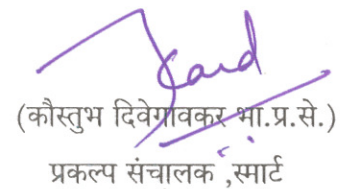 (कौस्तुभ दिवेगावकर भा.प्र.से.)
प्रकल्प संचालक ,स्मार्ट